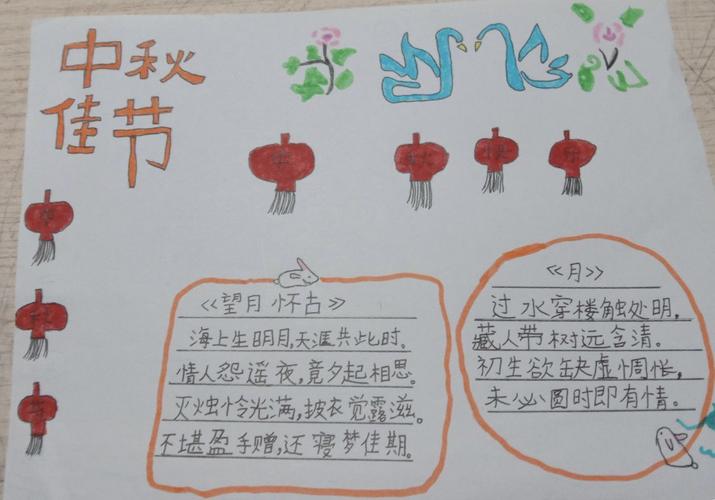 中秋
佳节
中 秋 快 乐
《望月怀古》
海上生明月,天涯共此时。
情人怨遥夜,竟夕起相思。
灭烛怜光满,披衣觉露滋。
不堪盈手赠,还寝梦佳期。
《月》
过水穿楼触处明,
藏人带树远含清。
初生欲缺虚惆怅,
未必圆时即有情。